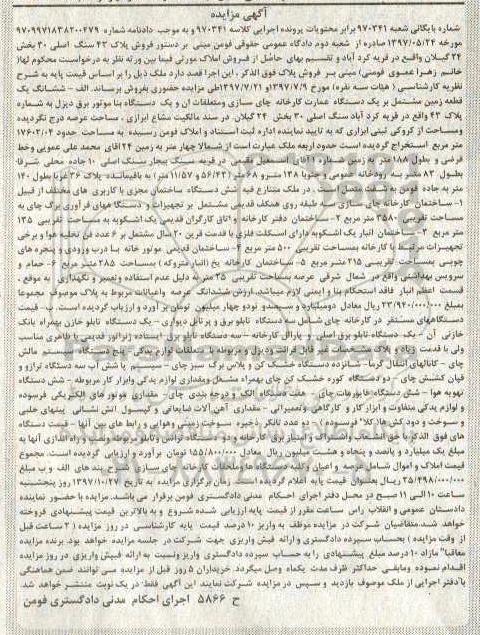 آگهی مزایده
شماره بایگانی شعبه ۹۷۰۳۴۱ برابر محتویات پرونده اجرایی کلاسه ۹۷۰۳۴۱ و به موجب دادنامه شماره ۹۷۰۹۹۷۱۸۳۸۲۰۰۴۷۹
مورخه ۱۳۹۷/۰۵/۲۴ صادره از شعبه دوم دادگاه عمومی حقوقی فومن مبنی بر دستور فروش پلاک ۴۳ سنگ اصلی ۳۰ بخش
۲۴ گیلان واقع در قریه کرد آباد و تقسیم بهای حاصل از فروش املاک مورثی فیما بین ورثه نظر به درخواست محکوم لهاز
خانم زهرا عموی فومنی مبنی بر فروش پلاک فوق الذکر، این اجرا قصد دارد ملک ذیل را بر اساس قیمت پایه به شرح
نظریه کارشناسی (هیئات سه نفره) مورخ ۱۳۹۷/۷/۹ و ۱۳۹۷/۷/۲۱ طی مزایده حضوری بفروش برساند. الف - ششدانگ یک
قطعه زمین مشتمل بر یک دستگاه عمارت کارخانه چای سازی ومتعلقات آن و یک دستگاه بنا موتور برق دیزل به شماره
پلاک ۴۳ واقع در قریه کرد آباد سنگ اصلی ۳۰ بخش ۲۴ گیلان در سند مالکیت مشاع ابرازی، مساحت عرصه درج نگردیده
ومساحت از کروکی ثبتی ابرازی که به تایید نماینده اداره ثبت اسناد و املاک فومن رسیده به مساحت حدود ۱۷۶۰۳/۰۴
متر مربع استخراج گردیده است حدود اربعه ملک عبارت است از شمالا چهار متر به زمین ۲۴ آقای محمد علی عمویی وخط
فرضی و بطول ۱۸۸ متر به زمین شماره ۱۱ آقای اسمعیل مقیمی در قریه سنگ بیجار سنگ اصلی ۱۰ جاده محلی شرقا
بطول ۸۳ متر به رودخانه عمومی و جنوبا ۱۳۸ متر و ۶۸ متر (۵۶/۴۳ متر و ۱۱/۵۷ متر) به باقیمانده پلاک ۳۶ غربا بطول ۱۴۰
متر به جاده فومن به شفت متصل است. در ملک متنازع فیه شش دستگاه ساختمان مجزی با کاربری های مختلف از قبیل
۱- ساختمان کارخانه چای سازی سه طبقه روی همکف قدیمی مشتمل بر تجهیزات و دستگا ههای فرآوری برگ چای به
مساحت تقریبی ۳۵۸۰ متر مربع ۲- ساختمان دفتر کارخانه و اتاق کارگران قدیمی یک اشکوبه به مساحت تقریبی ۱۳۵
متر مربع ۳- ساختمان انبار یک اشکوبه دارای اسکلت فلزی با قدمت قرین ۲۰ سال مشتمل بر ۶ عدد فن تخلیه هوا و برخی
تجهیزات مرتبط با کارخانه بمساحت تقریبی ۵۰۰ متر مربع ۴- ساختمان قدیمی موتور خانه با درب ورودی و پنجره های
چوبی بمساحت تقریبی ۲۱۵ متر مربع ۵- ساختمان کارخانه یخ (انبار متروکه) بمساحت ۳۸۵ متر مربع ۶- حمام و
سرویس بهداشتی واقع در شمال شرقی عرصه بمساحت تقریبی ۲۵ متر به دلیل عدم استفاده و تعمیر و نگهداری به موقع،
قسمت اعظم انبار فاقد استحکام بنا و ایمنی لازم میباشد. ارزش ششدانگ عرصه واعیانات مربوط به پلاک موصوف مجموعا
بمبلغ ۲۳/۹۴۰/۰۰۰/۰۰۰ ریال
دستگاههای مستقر در کارخانه چای شامل سه دستگاه تابلو برق و پرتابل دیواری - یک دستگاه تابلو خازن بهمراه بانک
خازنی آن - یک دستگاه تابلو برق اصلی و پارالل کارخانه - سه دستگاه تابلو برق ایستاده ژنراتور قدیمی با ظاهری مناسب
ولی با قدمت زیاد و پلاک مشخصات غیر قابل قرائت ودیزل و مربوطه با متعلقات لوازم یدکی - پنج دستگاه سیستم مالش
چای - کانالهای انتقال گرما - شانزده دستگاه خشک کن و پلاس برگ سبز چای - سیستم پاشش آب سه دستگاه ترازو و
قپان کشش چای - دو دستگاه کوره خشک کن چای بهمراه مشعل ومقداری لوازم یدکی وابزار کار مربوطه - شش دستگاه
تهویه هوا - شش دستگاه هفت دستگاه الک و درجه بندی چای - مقداری موتور های الکتریکی فرسوده
و لوازم یدکی متفاوت و ابزار کار و کارگاهی وتعمیراتی - مقداری آهن آلات ضایعاتی و کپسول آتش نشانی
و سوخت و دود کش ها کلا فرسوده) - دو عدد تانکر ذخیره سوخت زمینی وهوایی و رابط های بین آنها - قیمت دستگاه
های فوق الذکر با حق انشعاب واشتراک و امتیاز برق کارخانه و دو دستگاه ترانس وتابلو مربوطه ونصب و راه اندازی آنها به
مبلغ یک میلیارد و پانصد و پنجاه و هشت میلیون ریال معادل ۱۵۵/۸۰۰/۰۰۰ تومان برآورد و ارزیابی گردیده است. مجموع
قیمت املاک و اموال شامل عرصه و اعیان وکلیه دستگاه ها وملحقات کارخانه چای سازی به شرح بند های الف و ب مبلغ
۲۵/۴۹۸/۰۰۰/۰۰۰ ریال بعنوان قیمت پایه اعلام گردیده است. زمان برگزاری مزایده به تاریخ ۱۳۹۷/۱۰/۲۷ روز پنجشنبه
ساعت ۱۰ الی ۱۱ صبح در محل دفتر اجرای احکام مدنی دادگستری فومن برقرار می باشد. مزایده با حضور نماینده
دادستان عمومی و انقلاب راس ساعت مقرر از قیمت پایه ارزیابی شده شروع و به بالاترین قیمت پیشنهادی فروخته
خواهد شد. متقاضیان شرکت در مزایده موظف به واریز ۱۰ درصد قیمت پایه کارشناسی در روز مزایده (۲ ساعت قبل
از وقت مزایده) بحساب سپرده دادگستری و ارائه فیش واریزی جهت شرکت در جلسه مزایده خواهد بود. برنده مزایده
معاقبا" مازاد ۱۰ درصد مبلغ پیشنهادی را به حساب سپرده دادگستری واریز ونسبت به ارائه فیش واریزی در روز مزایده
اقدام نموده ومابقی حداکثر ظرف مدت یکماه وصل میگردد. خریداران ۵ روز قبل از مزایده می توانند ضمن هماهنگی
با دفتر اجرایی از ملک موصوف بازدید و سپس در مزایده شرکت نمایند این آگهی فقط در یک نوبت منتشر خواهد شد
ح ۵۸۶۶ اجرای احکام مدنی دادگستری فومن